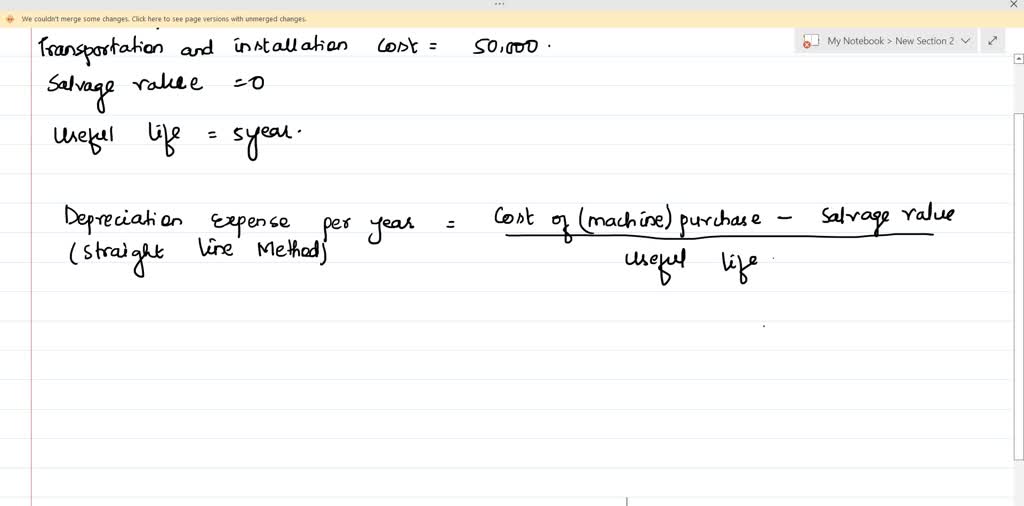 We couldn't merge some changes. Click here to see page versions with unmerged changes.
My Notebook > New Section 2
Transportation and installation cost = 50,000.
Salvage value = 0
Useful life = 5year.
Depreciation expense per year = Cost of (machine) purchase - Salvage value
(Straight line Method)
Useful life